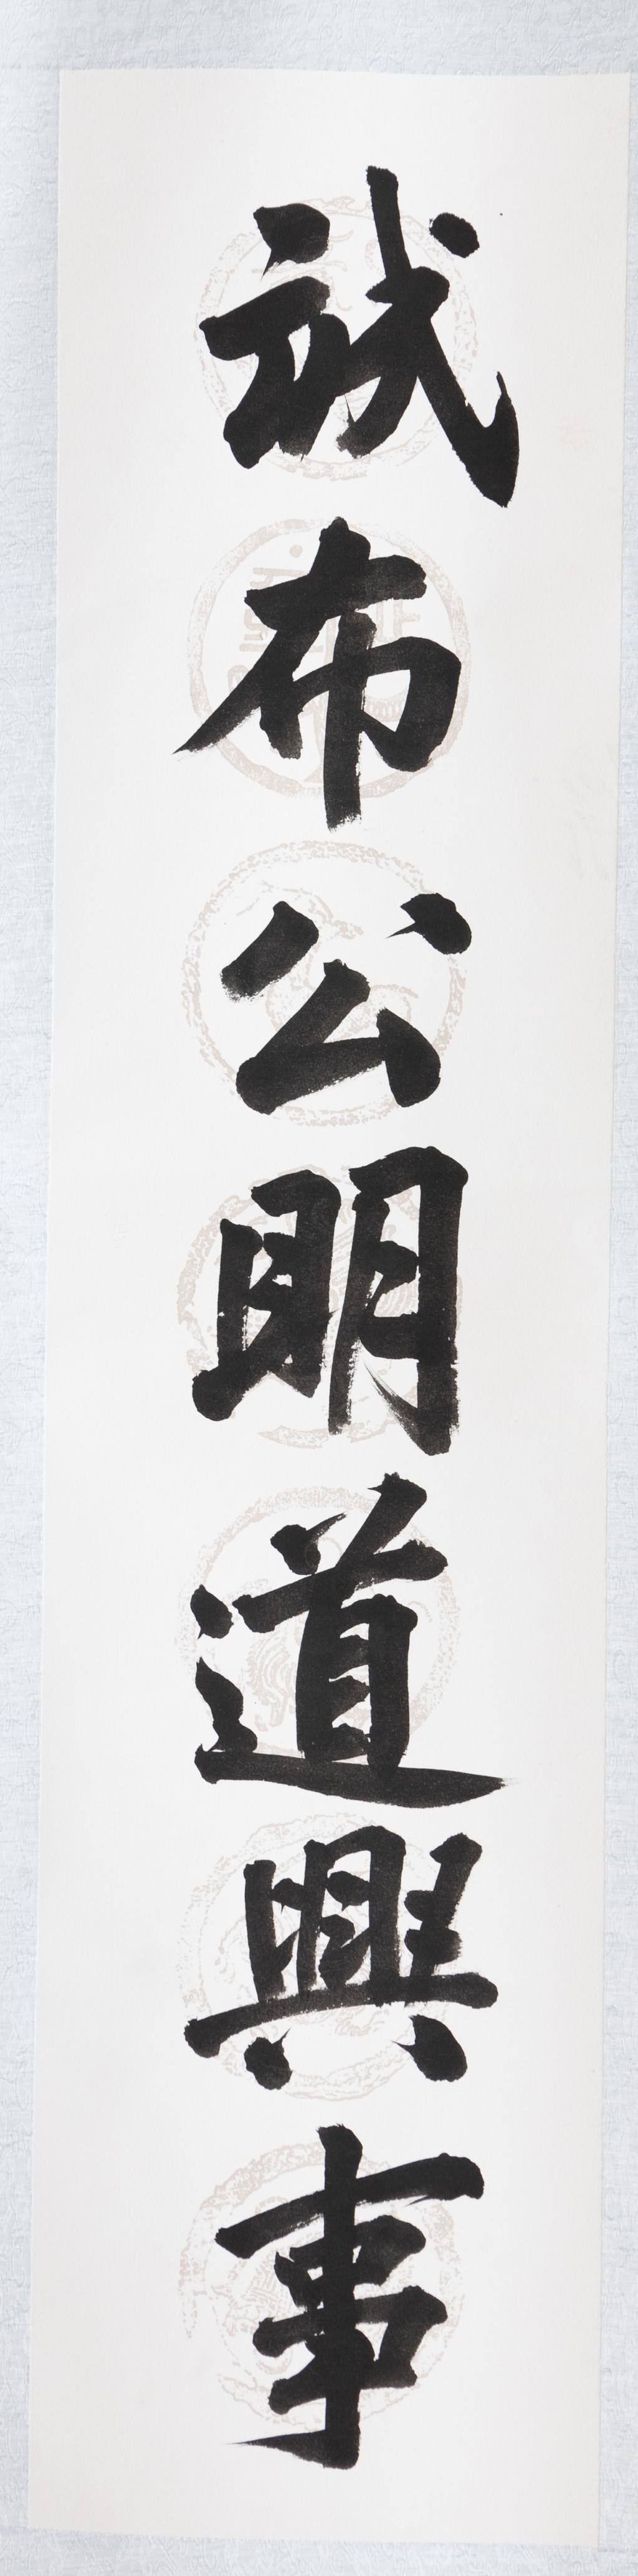 誠布公明道興事